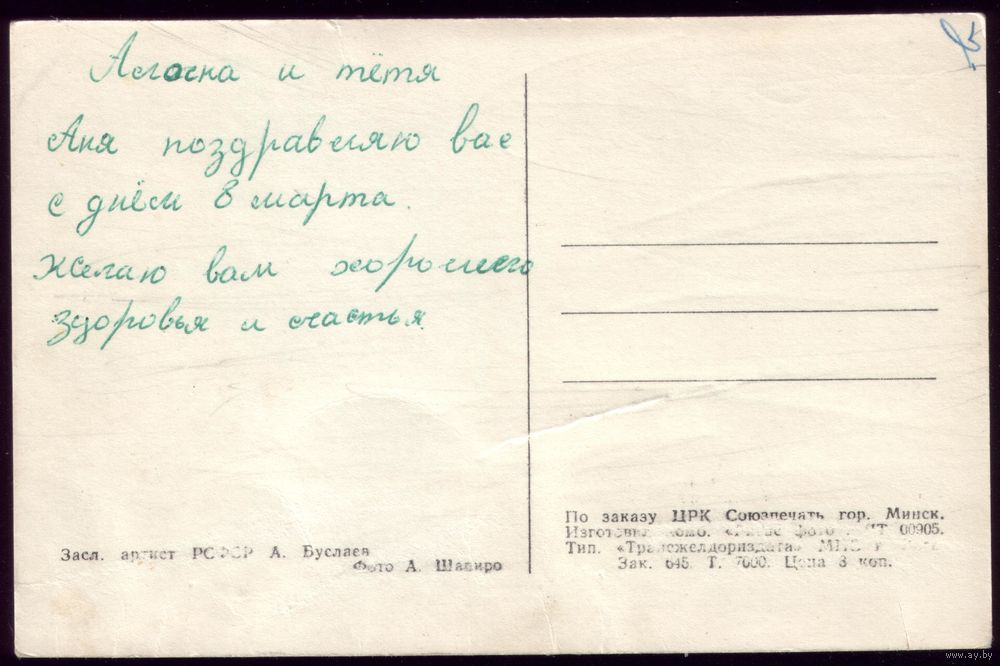 Алочка и тётя
Аня поздравляю вас
с днём 8 марта.
Желаю вам хорошего
здоровья и счастья.
Засл. артист РСФСР А. Буслаев
Фото А. Шапиро
По заказу ЦРК Союзпечать гор. Минск.
Изготовил комб. фото 00905.
Тип. «Трансжелдориздата» МПС
Зак. 645. Т. 7000. Цена 3 коп.
www.ay.by